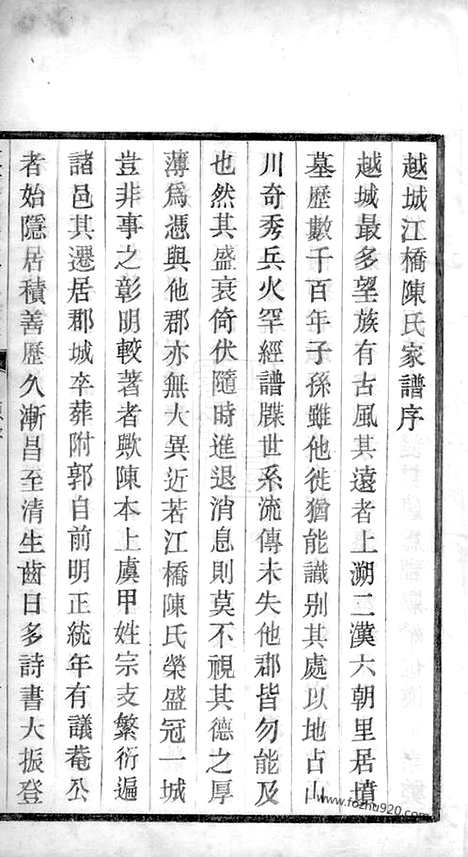 越城江橋陳氏家譜序
越城最多望族有古風其遠者上溯二漢六朝里居墳
墓歷數千百年子孫雖他徙猶能識别其處以地占山
川奇秀兵火罕經譜牒世系流傳未失他郡皆勿能及
也然其盛衰倚伏隨時進退消息則莫不視其德之厚
薄爲憑與他郡亦無大異近若江橋陳氏榮盛冠一城
豈非事之彰明較著者歟陳本上虞甲姓宗支繁衍遍
諸邑其遷居郡城卒葬附郭自前明正統年有議菴公
者始隱居積善歷久漸昌至清生齒日多詩書大振登
www.fozhu920.com